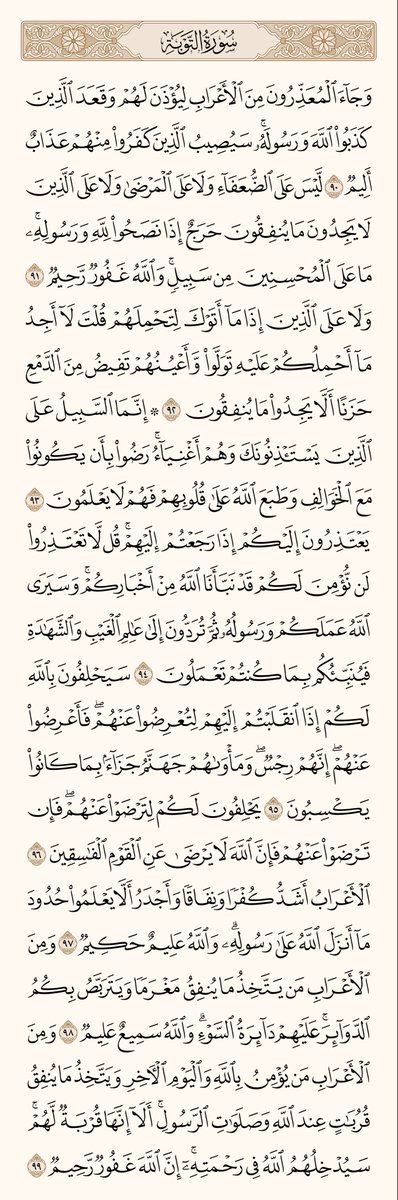 سُورَةُ التَّوۡبَةِ
وَجَآءَ ٱلۡمُعَذِّرُونَ مِنَ ٱلۡأَعۡرَابِ لِيُؤۡذَنَ لَهُمۡ وَقَعَدَ ٱلَّذِينَ
كَذَبُواْ ٱللَّهَ وَرَسُولَهُۥۚ سَيُصِيبُ ٱلَّذِينَ كَفَرُواْ مِنۡهُمۡ عَذَابٌ
أَلِيمٞ ٩٠ لَّيۡسَ عَلَى ٱلضُّعَفَآءِ وَلَا عَلَى ٱلۡمَرۡضَىٰ وَلَا عَلَى ٱلَّذِينَ
لَا يَجِدُونَ مَا يُنفِقُونَ حَرَجٌ إِذَا نَصَحُواْ لِلَّهِ وَرَسُولِهِۦۚ
مَا عَلَى ٱلۡمُحۡسِنِينَ مِن سَبِيلٖۚ وَٱللَّهُ غَفُورٞ رَّحِيمٞ ٩١
وَلَا عَلَى ٱلَّذِينَ إِذَا مَآ أَتَوۡكَ لِتَحۡمِلَهُمۡ قُلۡتَ لَآ أَجِدُ
مَآ أَحۡمِلُكُمۡ عَلَيۡهِ تَوَلَّواْ وَّأَعۡيُنُهُمۡ تَفِيضُ مِنَ ٱلدَّمۡعِ
حَزَنًا أَلَّا يَجِدُواْ مَا يُنفِقُونَ ٩٢ ۞ إِنَّمَا ٱلسَّبِيلُ عَلَى
ٱلَّذِينَ يَسۡتَـٔۡذِنُونَكَ وَهُمۡ أَغۡنِيَآءُۚ رَضُواْ بِأَن يَكُونُواْ
مَعَ ٱلۡخَوَالِفِ وَطَبَعَ ٱللَّهُ عَلَىٰ قُلُوبِهِمۡ فَهُمۡ لَا يَعۡلَمُونَ ٩٣
يَعۡتَذِرُونَ إِلَيۡكُمۡ إِذَا رَجَعۡتُمۡ إِلَيۡهِمۡۚ قُل لَّا تَعۡتَذِرُواْ
لَن نُّؤۡمِنَ لَكُمۡ قَدۡ نَبَّأَنَا ٱللَّهُ مِنۡ أَخۡبَارِكُمۡۚ وَسَيَرَى
ٱللَّهُ عَمَلَكُمۡ وَرَسُولُهُۥ ثُمَّ تُرَدُّونَ إِلَىٰ عَٰلِمِ ٱلۡغَيۡبِ وَٱلشَّهَٰدَةِ
فَيُنَبِّئُكُم بِمَا كُنتُمۡ تَعۡمَلُونَ ٩٤ سَيَحۡلِفُونَ بِٱللَّهِ
لَكُمۡ إِذَا ٱنقَلَبۡتُمۡ إِلَيۡهِمۡ لِتُعۡرِضُواْ عَنۡهُمۡۖ فَأَعۡرِضُواْ
عَنۡهُمۡۖ إِنَّهُمۡ رِجۡسٞۖ وَمَأۡوَىٰهُمۡ جَهَنَّمُ جَزَآءَۢ بِمَا كَانُواْ
يَكۡسِبُونَ ٩٥ يَحۡلِفُونَ لَكُمۡ لِتَرۡضَوۡاْ عَنۡهُمۡۖ فَإِن
تَرۡضَوۡاْ عَنۡهُمۡ فَإِنَّ ٱللَّهَ لَا يَرۡضَىٰ عَنِ ٱلۡقَوۡمِ ٱلۡفَٰسِقِينَ ٩٦
ٱلۡأَعۡرَابُ أَشَدُّ كُفۡرٗا وَنِفَاقٗا وَأَجۡدَرُ أَلَّا يَعۡلَمُواْ حُدُودَ
مَآ أَنزَلَ ٱللَّهُ عَلَىٰ رَسُولِهِۦۗ وَٱللَّهُ عَلِيمٌ حَكِيمٞ ٩٧ وَمِنَ
ٱلۡأَعۡرَابِ مَن يَتَّخِذُ مَا يُنفِقُ مَغۡرَمٗا وَيَتَرَبَّصُ بِكُمُ
ٱلدَّوَآئِرَۚ عَلَيۡهِمۡ دَآئِرَةُ ٱلسَّوۡءِۗ وَٱللَّهُ سَمِيعٌ عَلِيمٞ ٩٨ وَمِنَ
ٱلۡأَعۡرَابِ مَن يُؤۡمِنُ بِٱللَّهِ وَٱلۡيَوۡمِ ٱلۡأٓخِرِ وَيَتَّخِذُ مَا يُنفِقُ
قُرُبَٰتٍ عِندَ ٱللَّهِ وَصَلَوَٰتِ ٱلرَّسُولِۚ أَلَآ إِنَّهَا قُرۡبَةٞ لَّهُمۡۚ
سَيُدۡخِلُهُمُ ٱللَّهُ فِي رَحۡمَتِهِۦٓۚ إِنَّ ٱللَّهَ غَفُورٞ رَّحِيمٞ ٩٩